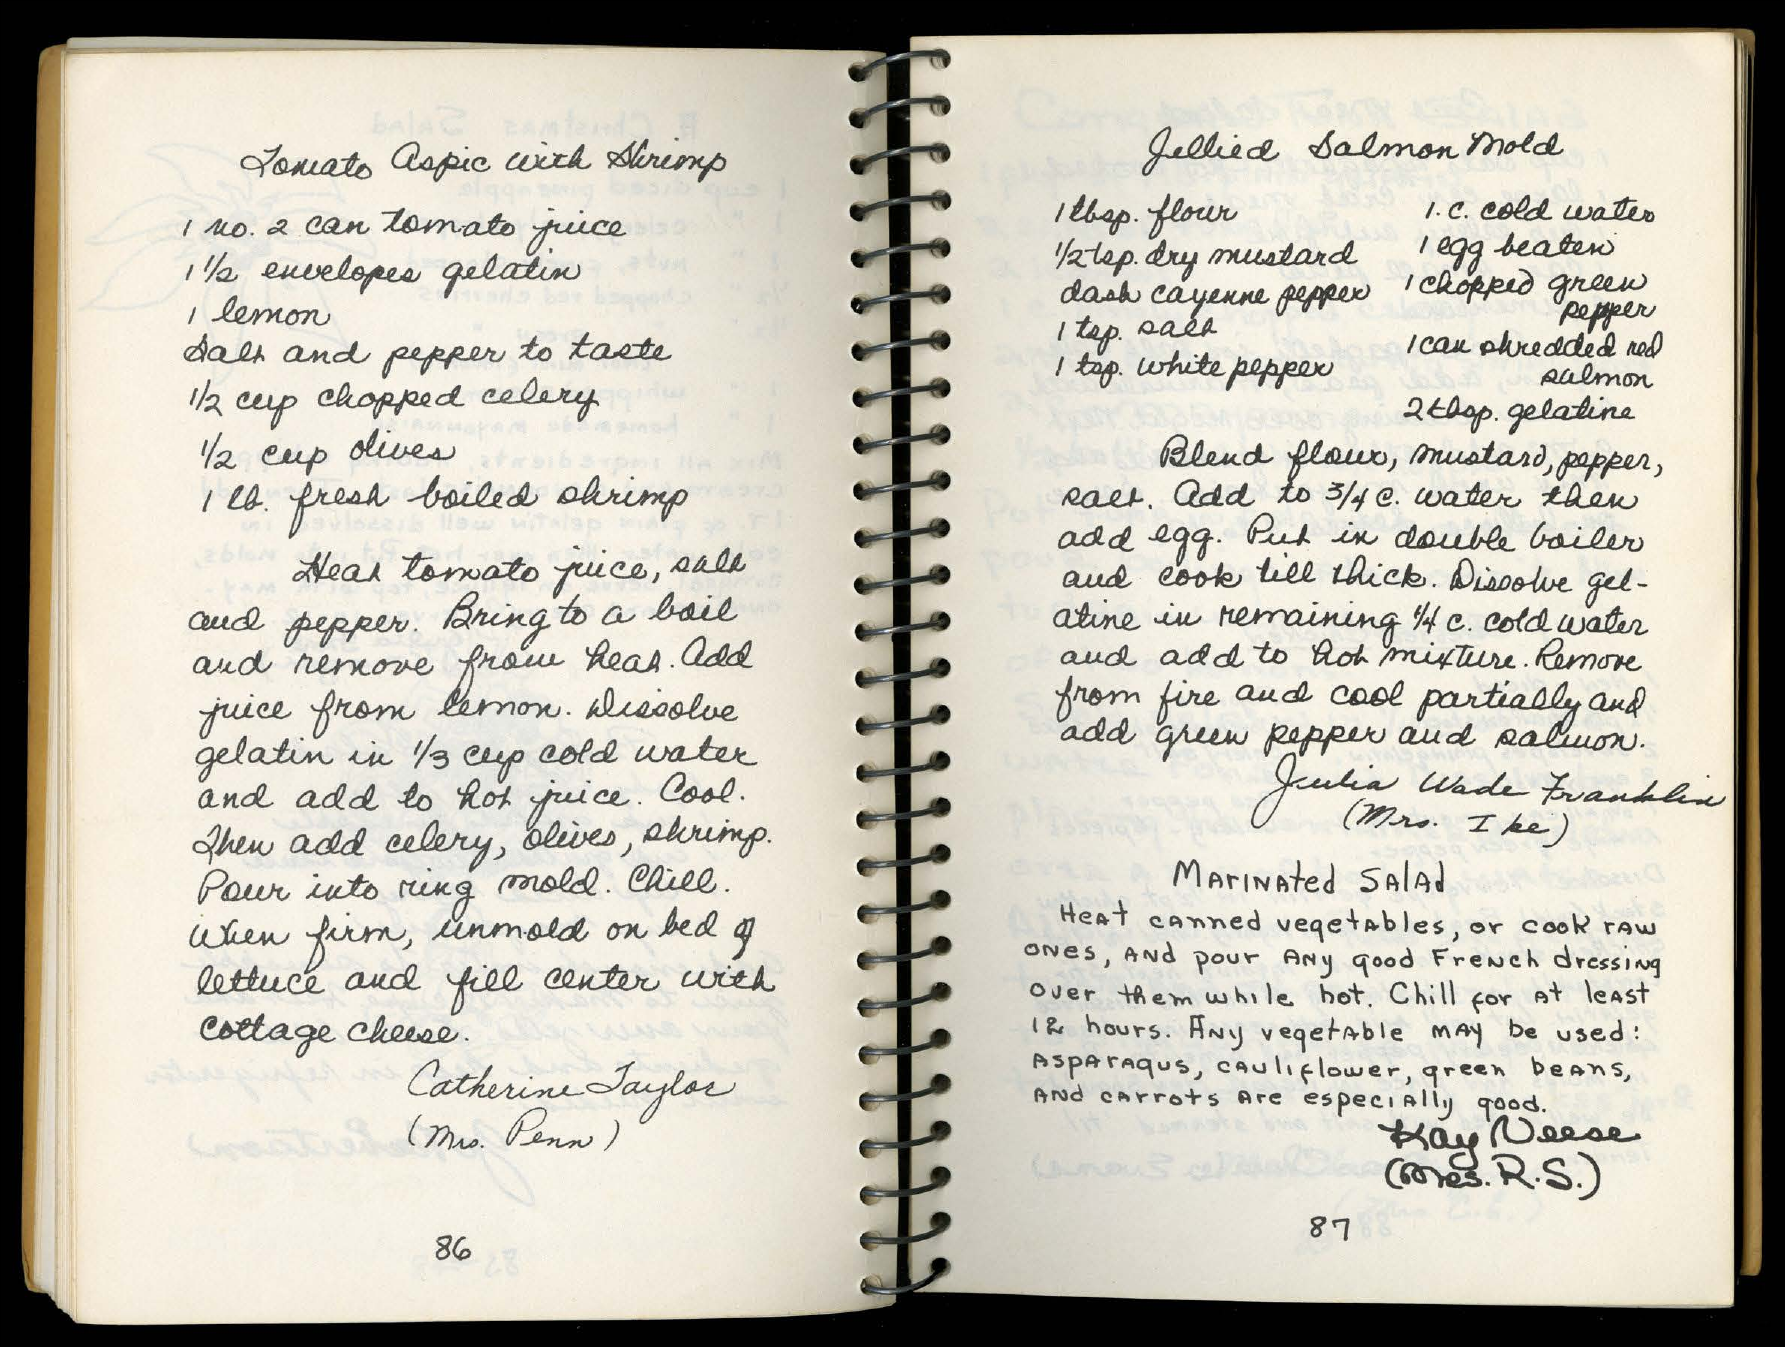 Tomato Aspic with Shrimp
1 no. 2 can tomato juice
1 1/2 envelopes gelatin
1 lemon
Salt and pepper to taste
1/2 cup chopped celery
1/2 cup olives
1 lb. fresh boiled shrimp
Heat tomato juice, salt
and pepper. Bring to a boil
and remove from heat. Add
juice from lemon. Dissolve
gelatin in 1/3 cup cold water
and add to hot juice. Cool.
Then add celery, olives, shrimp.
Pour into ring mold. Chill.
When firm, unmold on bed of
lettuce and fill center with
cottage cheese.
Catherine Taylor
(Mrs. Penn)
86
Jellied Salmon Mold
1 tbsp. flour
1/2 tsp. dry mustard
dash cayenne pepper
1 tsp. salt
1 tsp. white pepper
1. c. cold water
1 egg beaten
1 chopped green
pepper
1 can shredded red
salmon
2 tbsp. gelatine
Blend flour, mustard, pepper,
salt. Add to 3/4 c. water then
add egg. Put in double boiler
and cook till thick. Dissolve gel-
atine in remaining 1/4 c. cold water
and add to hot mixture. Remove
from fire and cool partially and
add green pepper and salmon.
Julia Wade Franklin
(Mrs. Ike)
Marinated Salad
Heat canned vegetables, or cook raw
ones, and pour any good French dressing
over them while hot. Chill for at least
12 hours. Any vegetable may be used:
asparagus, cauliflower, green beans,
and carrots are especially good.
Kay Neese
(Mrs. R.S.)
87